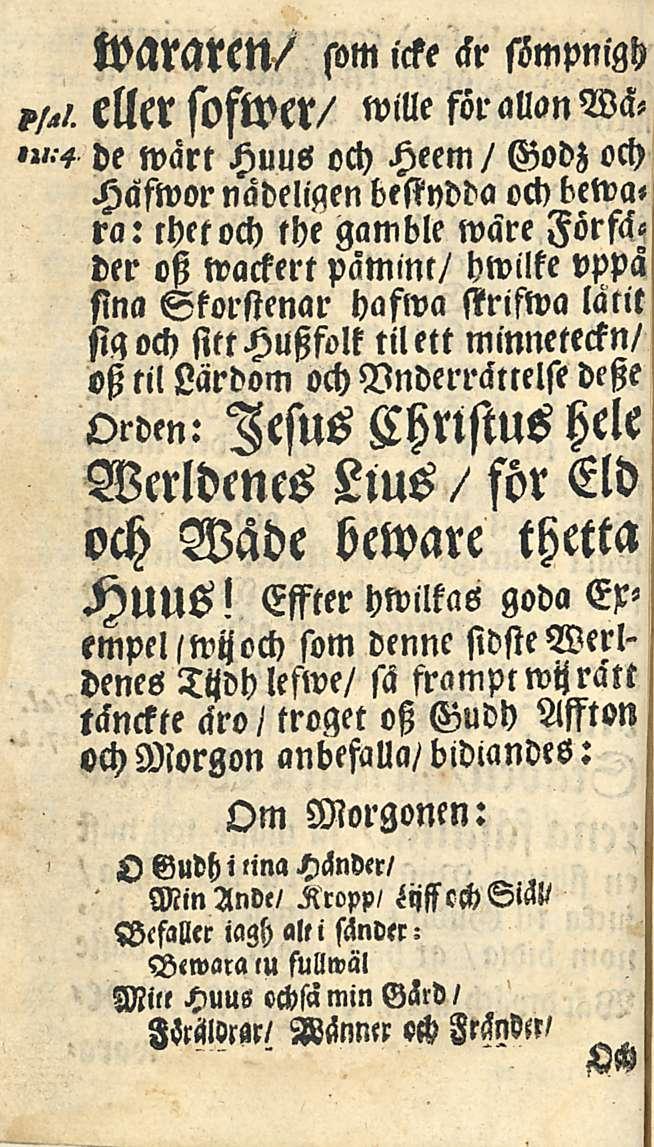 wararen/ som icke är sömpnigh
Psal. eller sofwer/ wille för allan Wå-
121:4. de wårt Huus och Heem / Godz och
Håfwor nådeligen beskydda och bewa-
ra: thet och the gamble wåre Förfä-
der oß wackert påmint/ hwilke vppå
sina Skorstenar hafwa skrifwa låtit
sig och sitt Hußfolk til ett minneteckn/
oß til Lärdom och Vnderrättelse deße
Orden: Jesus Christus hele
Werldenes Lius / för Eld
och Wåde beware thetta
Huus! Effter hwilkas goda Ex-
empel / wij och som denne sidste Werl-
denes Tijdh lefwe/ så frampt wij rätt
tänckte äro / troget oß Gudh Affton
och Morgon anbefalla/ bidiandes:
Om Morgonen:
O Gudh i tina Händer/
Min Ande/ Kropp/ Lijff och Siäl/
Befaller iagh alt i sänder:
Bewara tu fullwäl
Mitt Huus ochså min Gård /
Föräldrar/ Wänner och Fränder/
Och